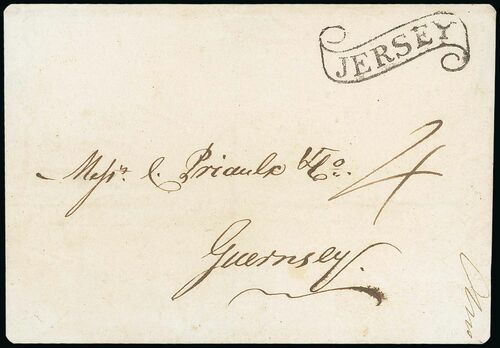 JERSEY
Messrs. C. Priaulx & Co. 4
Guernsey.